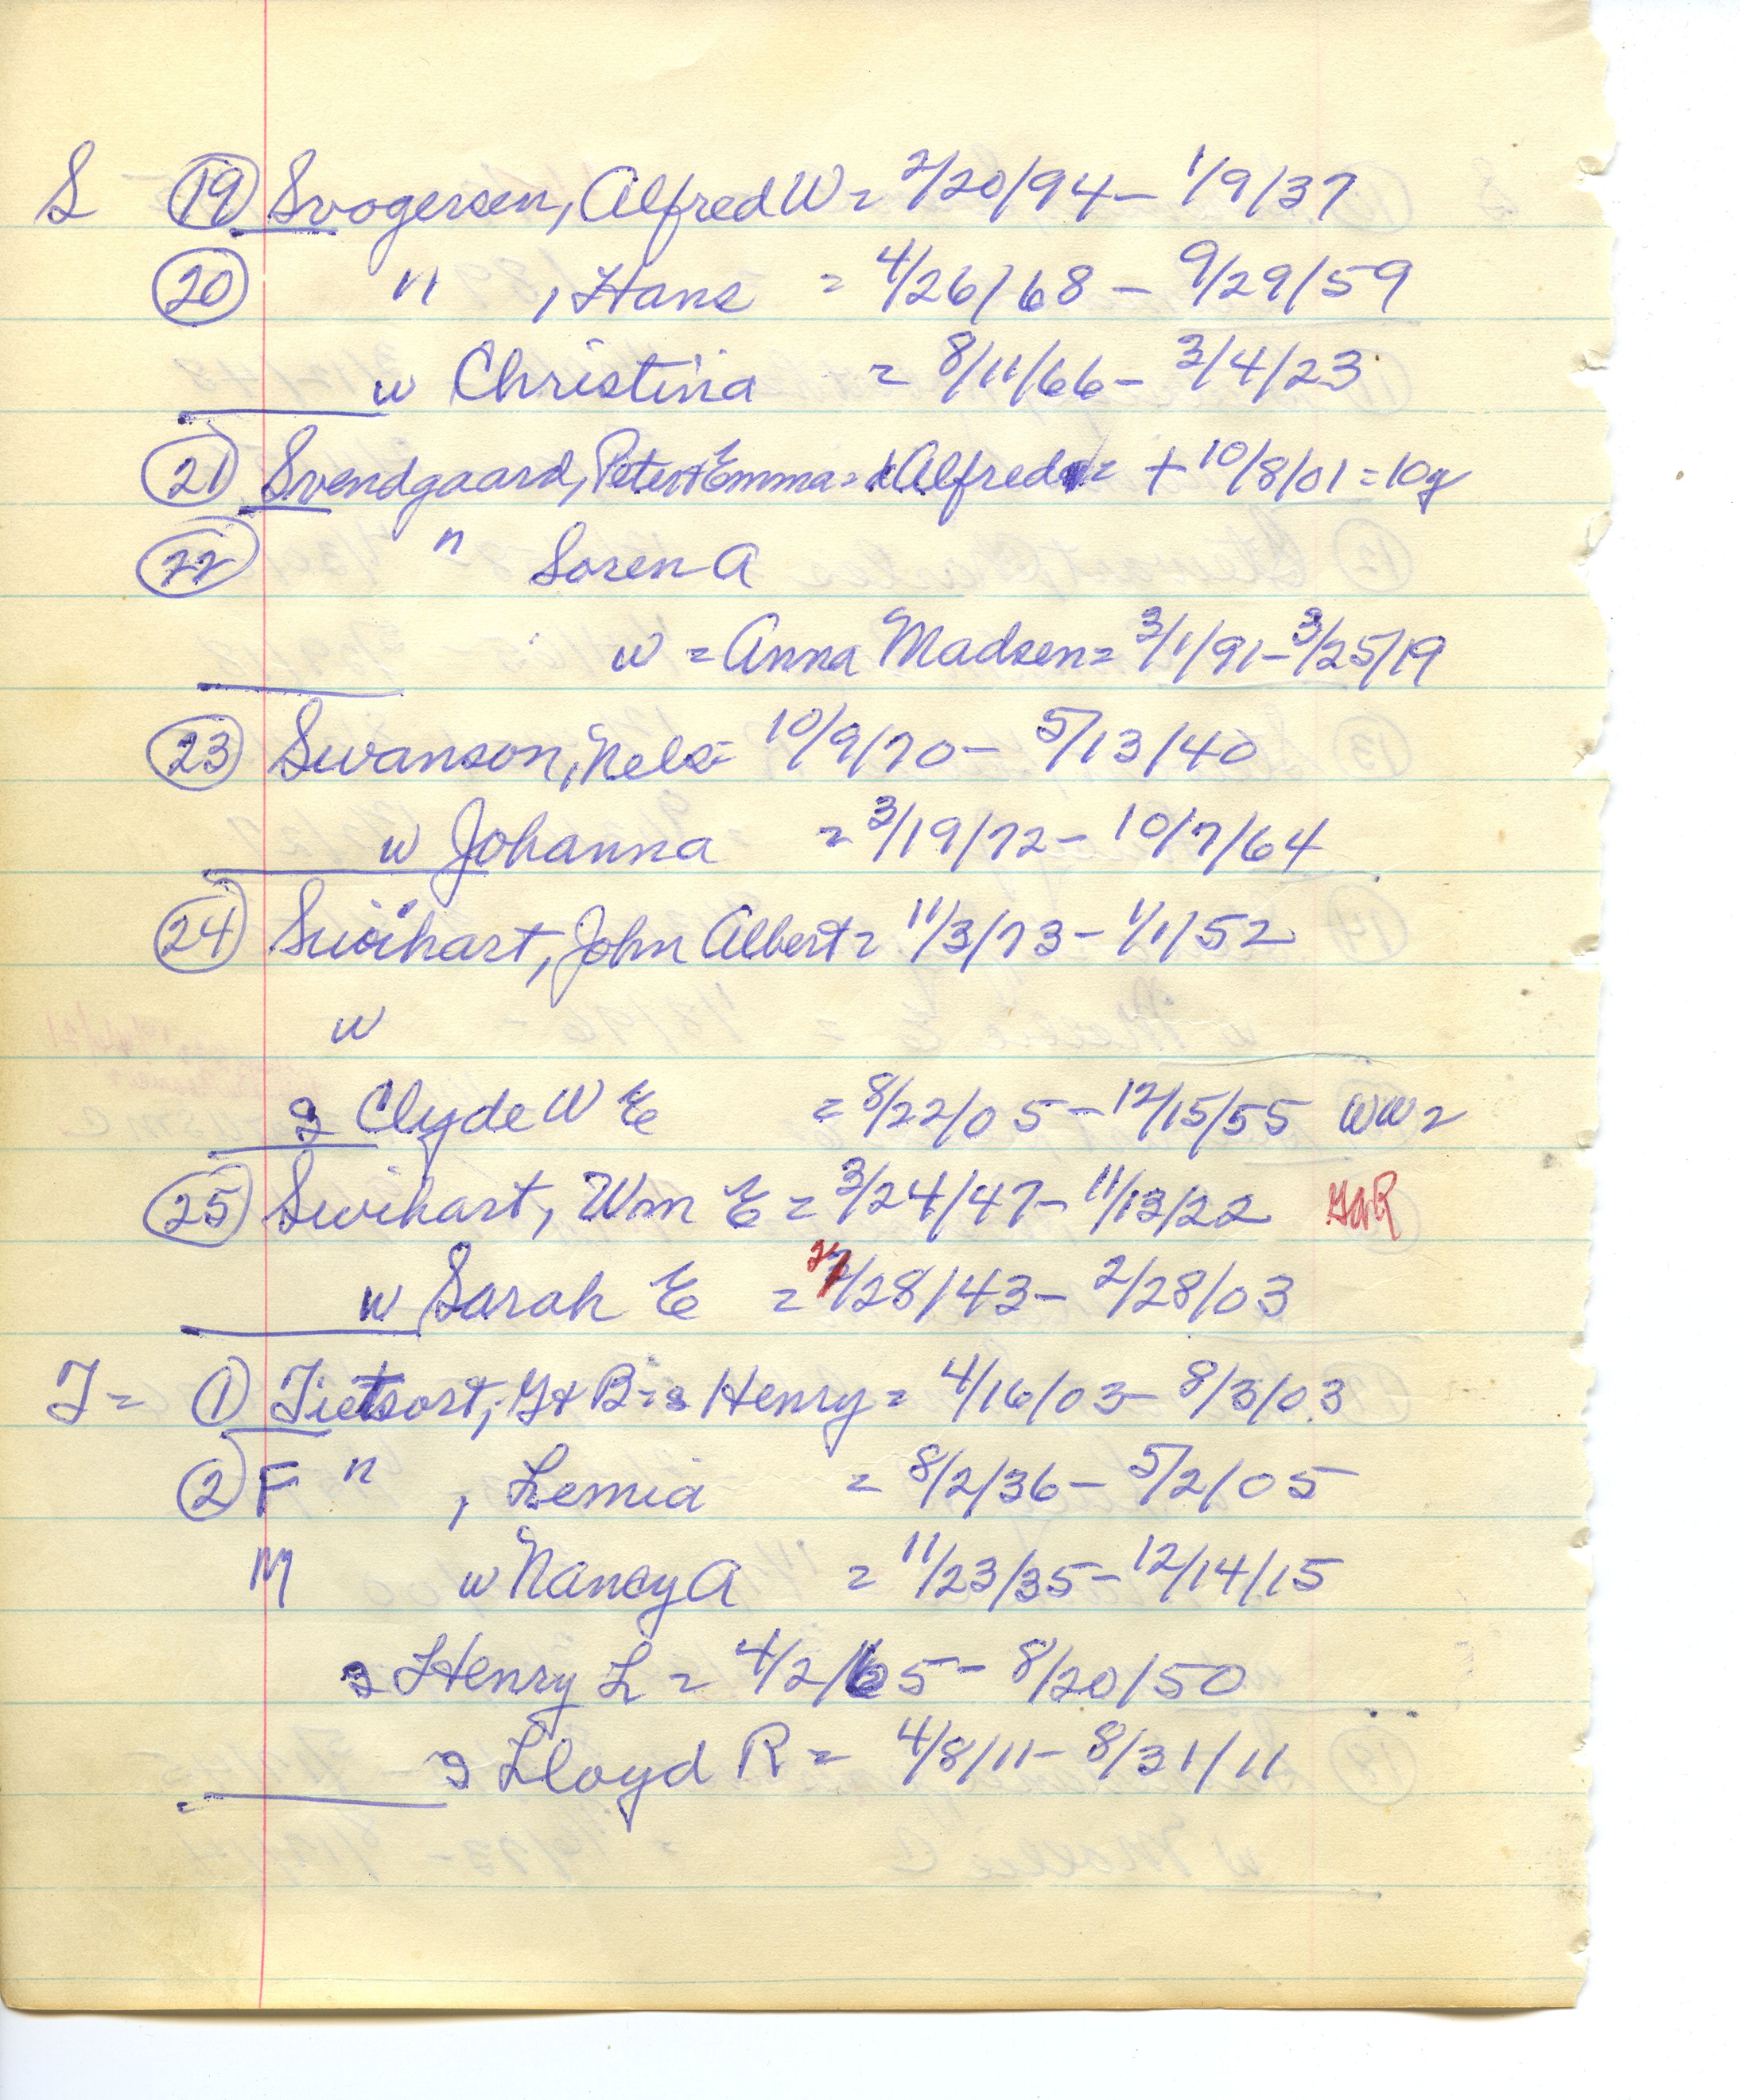 S 19 Svogersen, Alfred W = 2/20/94 - 1/9/37
20 " , Hans = 4/26/68 - 9/29/59
w Christina = 8/11/66 - 3/4/23
21 Svendgaard, Peter + Emma = Alfred = + 10/8/01 = 10y
22 " Soren A
w = Anna Madsen = 3/1/91 - 3/25/19
23 Swanson, Nels = 10/9/70 - 5/13/40
w Johanna = 3/19/72 - 10/7/64
24 Swihart, John Albert = 11/3/73 - 1/1/52
w
s Clyde W E = 8/22/05 - 12/15/55 WW2
25 Swihart, Wm E = 3/24/47 - 11/13/22 GAR
w Sarah E = /28/43 - 2/28/03
T = 1 Tietsort, G + B = s Henry = 4/16/03 - 8/3/03
2 F " , Lemia = 8/2/36 - 5/2/05
M w Nancy A = 11/23/35 - 12/14/15
s Henry L = 4/2/65 - 8/20/50
s Lloyd R = 4/8/11 - 8/31/11